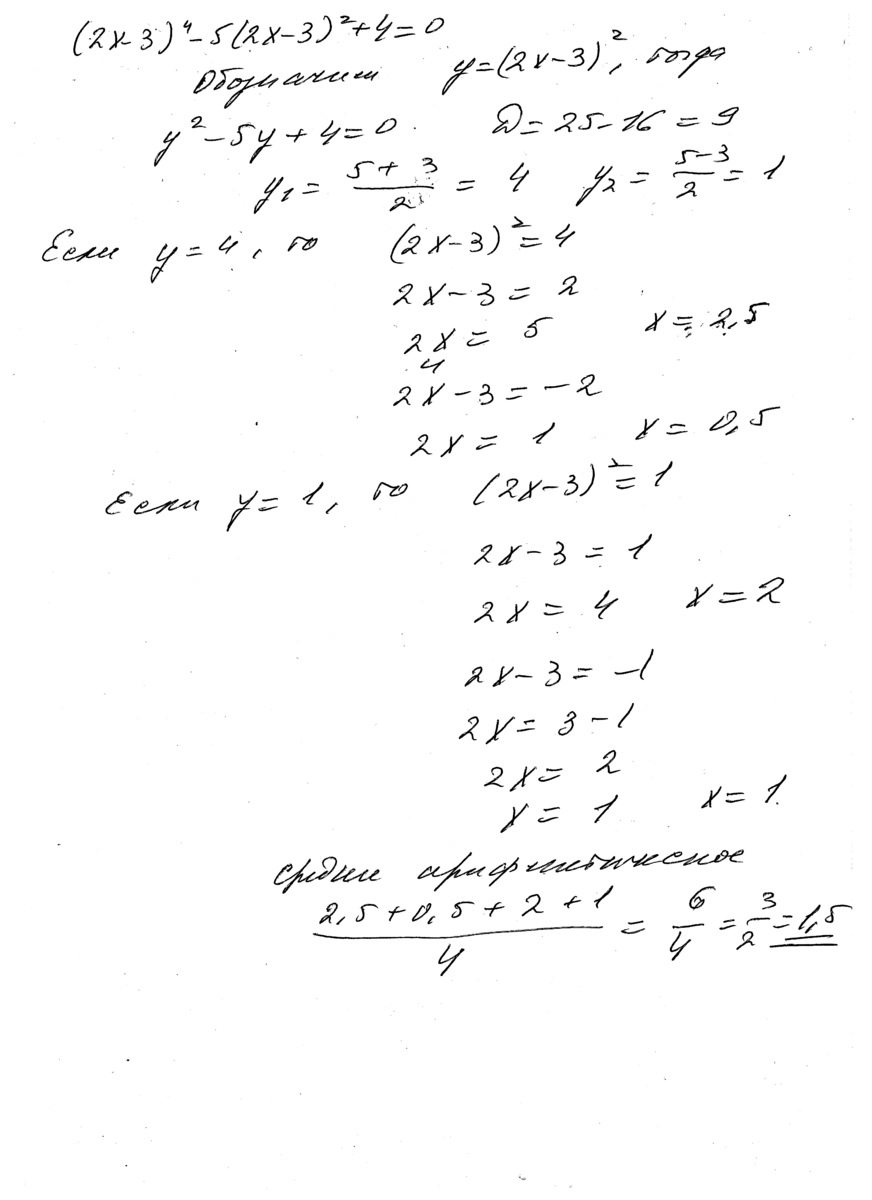 (2x-3)⁴-5(2x-3)²+4=0
Обозначим y=(2x-3)², тогда
y²-5y+4=0. D=25-16=9
y₁=(5+3)/2=4 y₂=(5-3)/2=1
Если y=4, то (2x-3)²=4
2x-3=2
2x=5 x=2,5
и
2x-3=-2
2x=1 x=0,5
Если y=1, то (2x-3)²=1
2x-3=1
2x=4 x=2
2x-3=-1
2x=3-1
2x=2
x=1 x=1.
среднее арифметическое
(2,5+0,5+2+1)/4=6/4=3/2=1,5